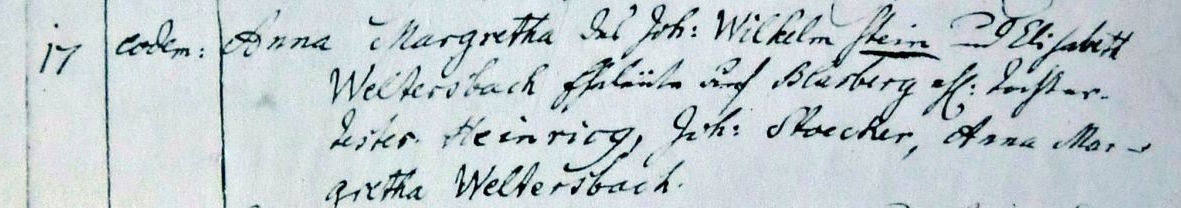 17 eodem: Anna Margretha des Joh: Wilhelm Stein und Elisabeth
Weltersbach Eheleute auf Blasberg ehl: Tochter.
testes. Heinrich, Joh: Stoecker, Anna Mar-
gretha Weltersbach.